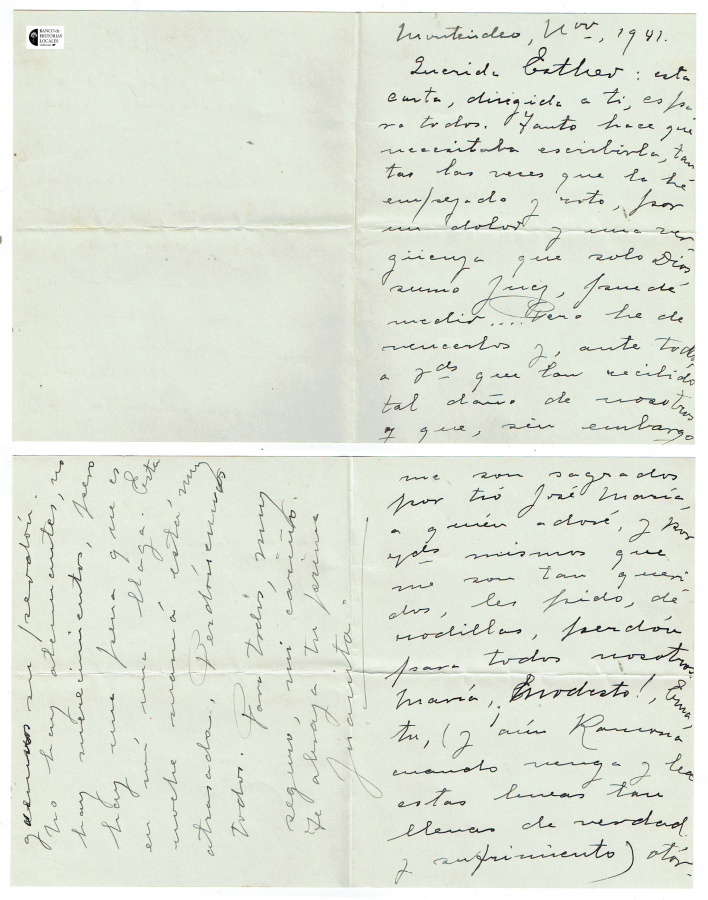 BANCO de
HISTORIAS
LOCALES
Montevideo, Nov., 1941.
Querida Esther: esta
carta, dirigida a ti, es pa
ra todos. Tanto hace que
necesitaba escribirla, tan
tas las veces que la hé
empezado y roto, por
un dolor y una ver
güenza que solo Dios
sumo Juez, puede
medir.... Pero he de
vencerlos y, ante todo
a Vds que han recibido
tal daño de nosotros
y que, sin embargo
me son sagrados
por tío José María,
a quién adoré, y por
Vds mismos que
me son tan queri
dos, les pido, de
rodillas, perdón
para todos nosotros.
María, Modesto!, Ema,
tu, (y aún Ramona
cuando venga y lea
estas líneas tan
llenas de verdad
y sufrimiento) otór-
guennos su perdón.
No hay atenuantes, no
hay merecimientos, pero
hay una pena que es
en mí una llaga. Esta
noche mamá está muy
atrasada. Perdónennos
todos. Para todos, muy
seguro, mi cariño.
Te abraza tu prima
Juanita.